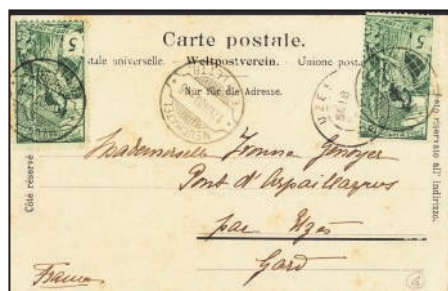 Carte postale.
tale universelle. Weltpostverein. Unione posta
Nur für die Adresse.
Côté réservé
to riservato all' indirizzo.
5
5
NEUCHATEL
UZÈS
Mademoiselle Yvonne
Pont d'Arpaillargues
par Uzès
Gard
France